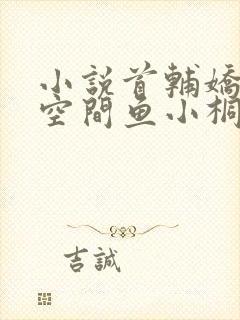 小說首輔嬌
空間魚小桐
吉誠